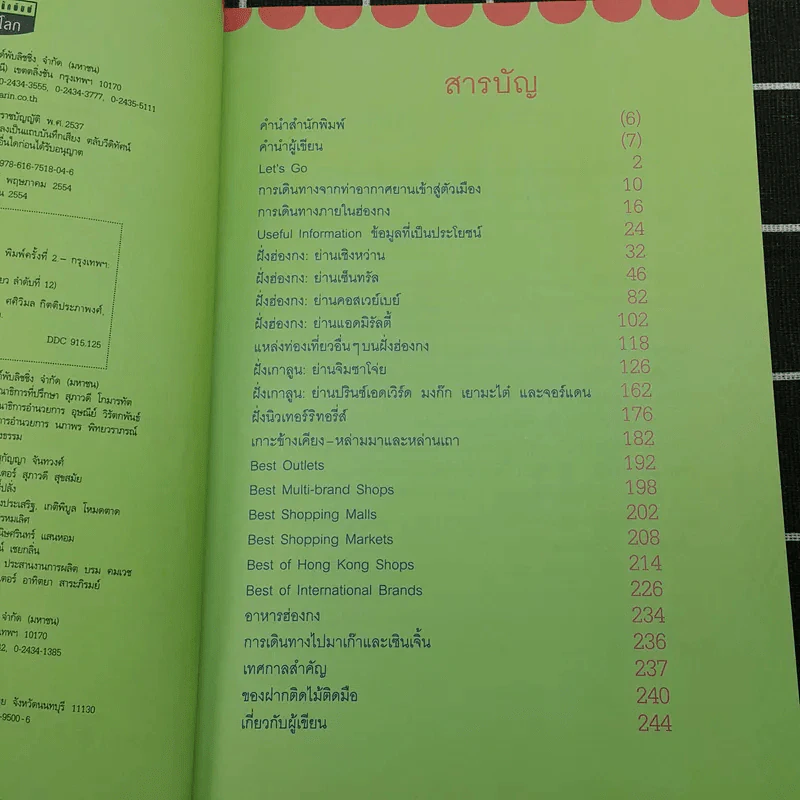 โลก
ต์พับลิชชิ่ง จำกัด (มหาชน)
เขตตลิ่งชัน กรุงเทพฯ 10170
0-2434-3555, 0-2434-3777, 0-2435-5111
arin.co.th
ราชบัญญัติ พ.ศ.2537
ลงเป็นแถบบันทึกเสียง ตลับวีดิทัศน์
อื่นใดก่อนได้รับอนุญาต
978-616-7518-04-6
พฤษภาคม 2554
น 2554
พิมพ์ครั้งที่ 2 – กรุงเทพฯ:
ยว ลำดับที่ 12)
ศศิวิมล กิตติประภาพงศ์,
DDC 915.125
ต์พับลิชชิ่ง จำกัด (มหาชน)
ณาธิการที่ปรึกษา สุภาวดี โกมารทัต
ณาธิการอำนวยการ อุษณีย์ วิรัตกพันธ์
การอำนวยการ นภาพร พิทยวราภรณ์
งธรรม
กัญญา จันทวงศ์
ตอร์ สุภาวดี สุขสมัย
งประเสริฐ, เกติพิบูล โหมดตาด
นิษศรินทร์ แสนหอม
น์ เชยกลิ่น
ประสานงานการผลิต บรม คมเวช
ตอร์ อาทิตยา สาระภิรมย์
จำกัด (มหาชน)
เทพฯ 10170
2, 0-2434-1385
ย จังหวัดนนทบุรี 11130
-9500-6
สารบัญ
คำนำสำนักพิมพ์ (6)
คำนำผู้เขียน (7)
Let's Go 2
การเดินทางจากท่าอากาศยานเข้าสู่ตัวเมือง 10
การเดินทางภายในฮ่องกง 16
Useful Information ข้อมูลที่เป็นประโยชน์ 24
ฝั่งฮ่องกง: ย่านเชิงหว่าน 32
ฝั่งฮ่องกง: ย่านเซ็นทรัล 46
ฝั่งฮ่องกง: ย่านคอสเวย์เบย์ 82
ฝั่งฮ่องกง: ย่านแอดมิรัลตี้ 102
แหล่งท่องเที่ยวอื่นๆบนฝั่งฮ่องกง 118
ฝั่งเกาลูน: ย่านจิมซาโจ่ย 126
ฝั่งเกาลูน: ย่านปรินซ์เอดเวิร์ด มงก๊ก เยามะไต๋ และจอร์แดน 162
ฝั่งนิวเทอร์ริทอรี่ส์ 176
เกาะข้างเคียง–หล่ามมาและหล่านเถา 182
Best Outlets 192
Best Multi-brand Shops 198
Best Shopping Malls 202
Best Shopping Markets 208
Best of Hong Kong Shops 214
Best of International Brands 226
อาหารฮ่องกง 234
การเดินทางไปมาเก๊าและเซินเจิ้น 236
เทศกาลสำคัญ 237
ของฝากติดไม้ติดมือ 240
เกี่ยวกับผู้เขียน 244